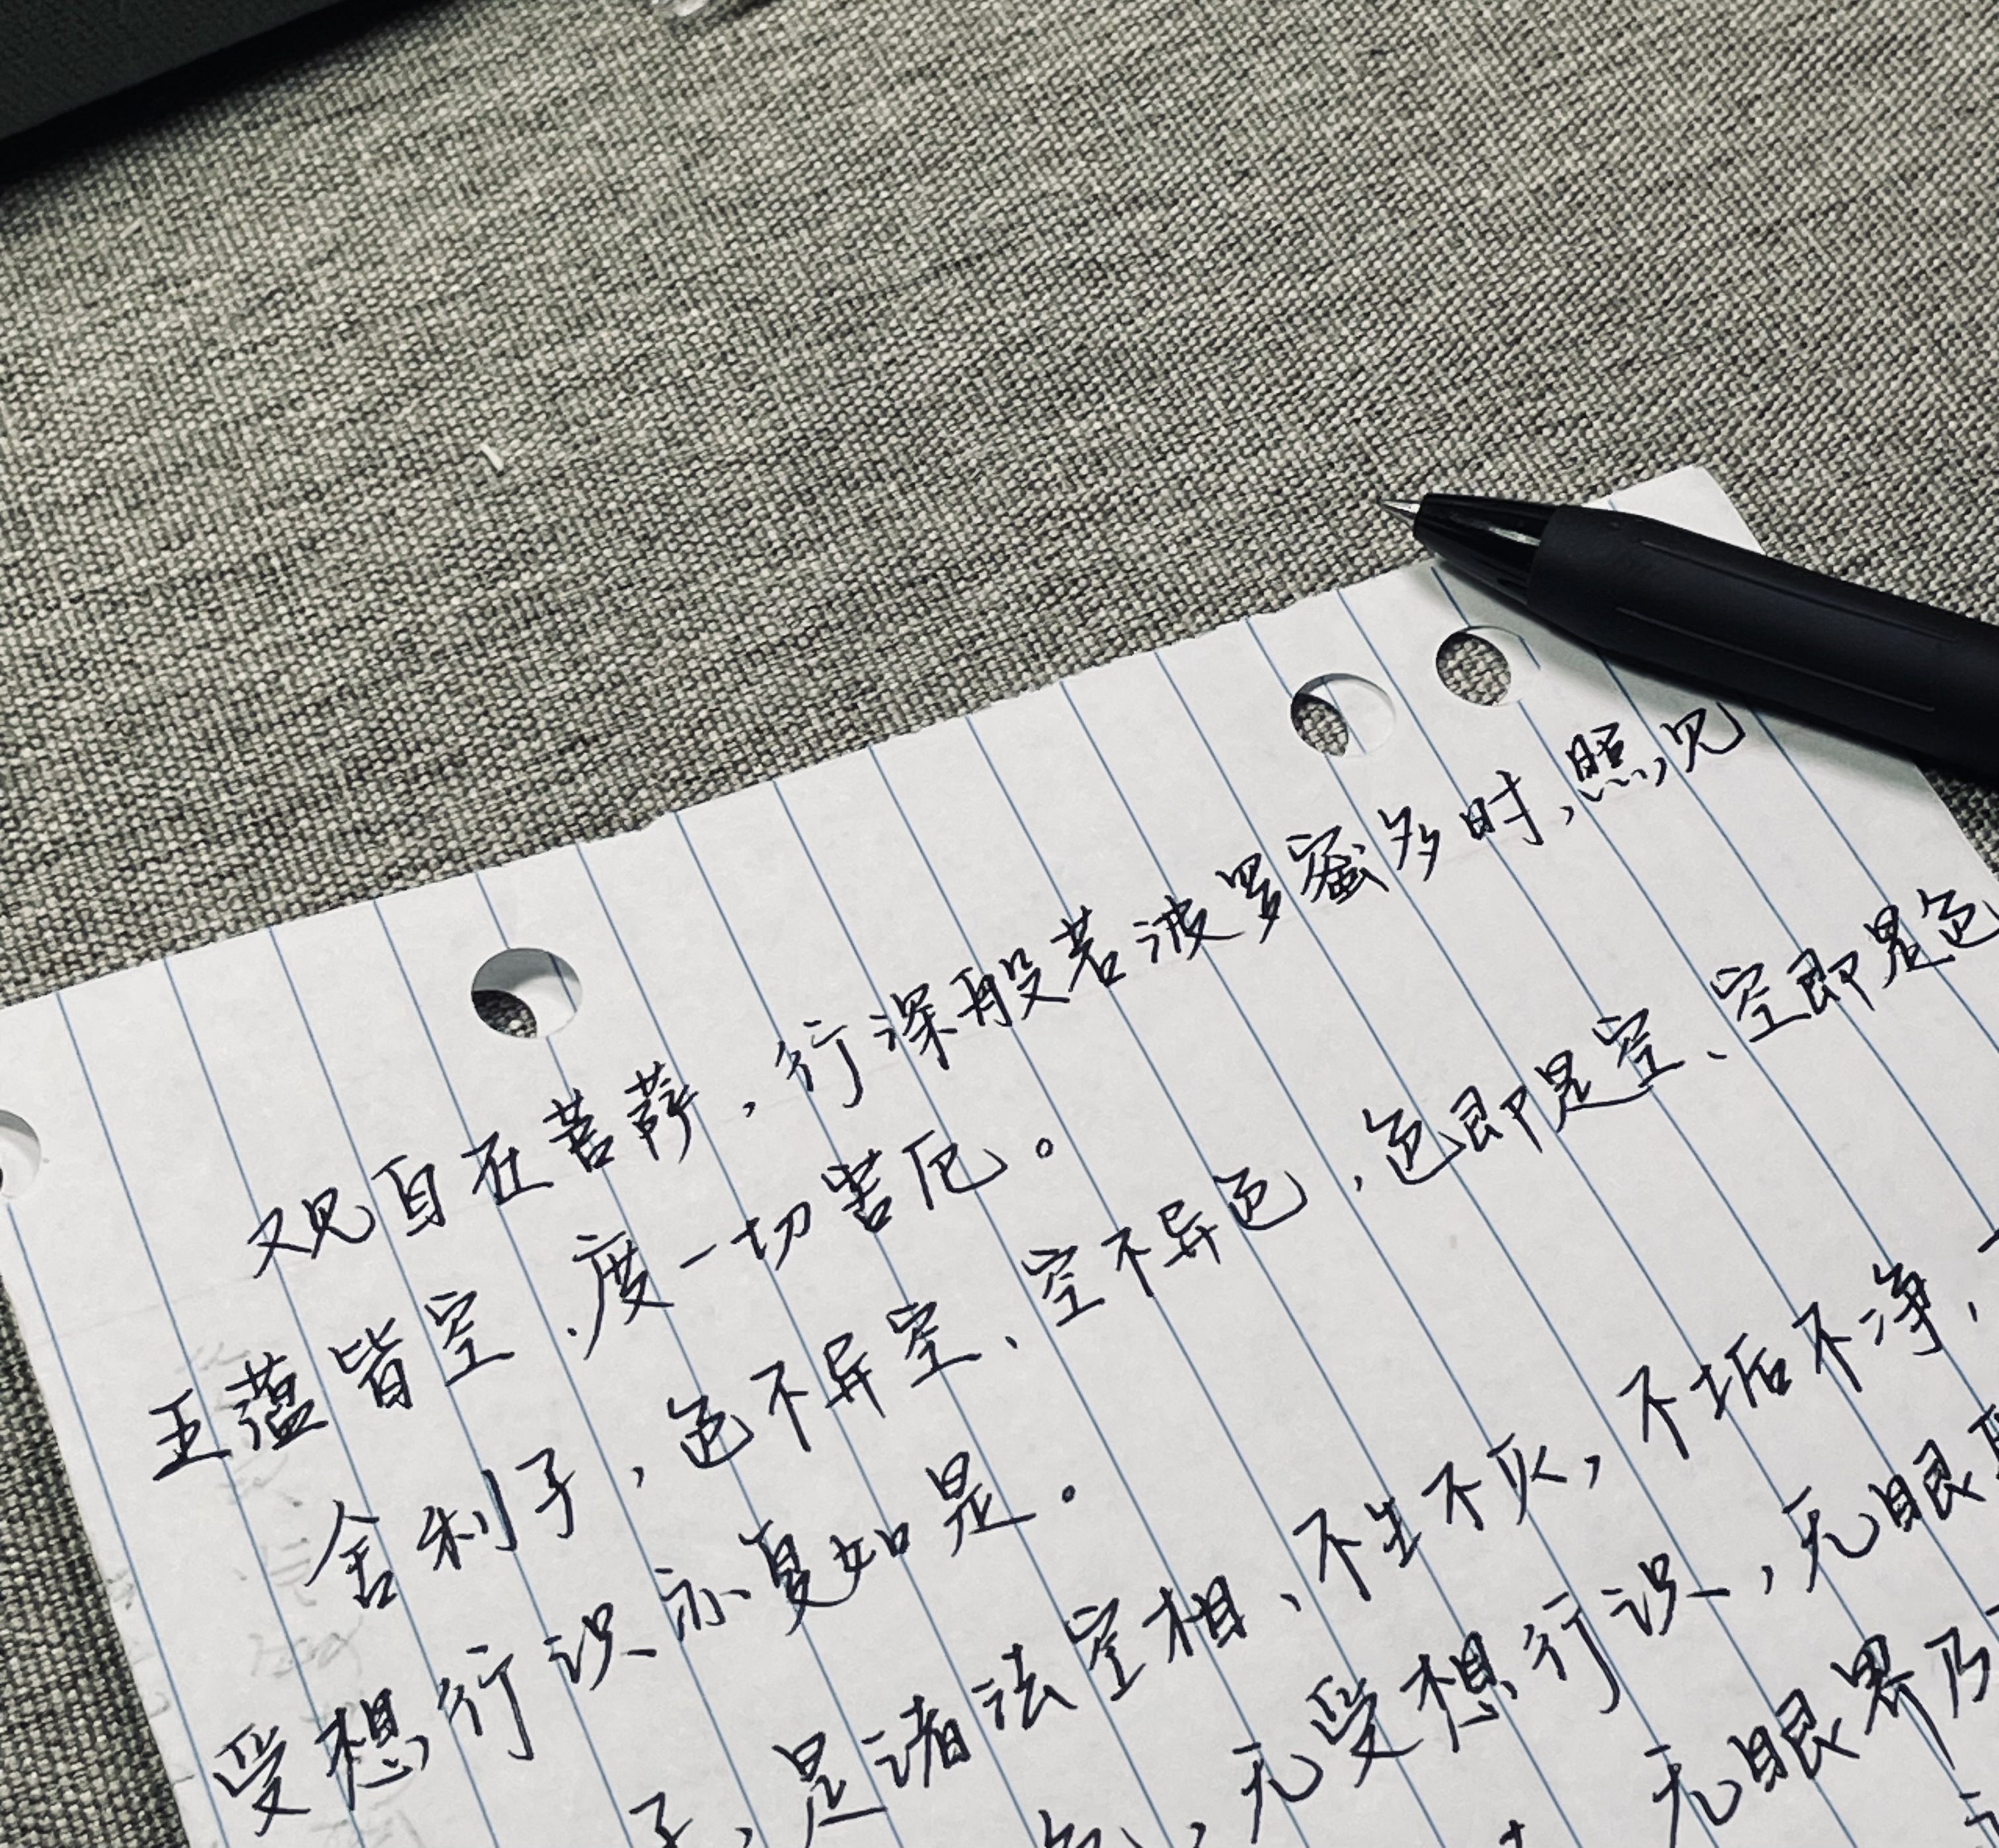 观自在菩萨，行深般若波罗蜜多时，照见
五蕴皆空，度一切害厄。
舍利子，色不异空、空不异色，色即是空、空即是色
受想行识亦复如是。
子，是诸法空相、不生不灭，不垢不净，
，无受想行识，无眼
无眼界乃